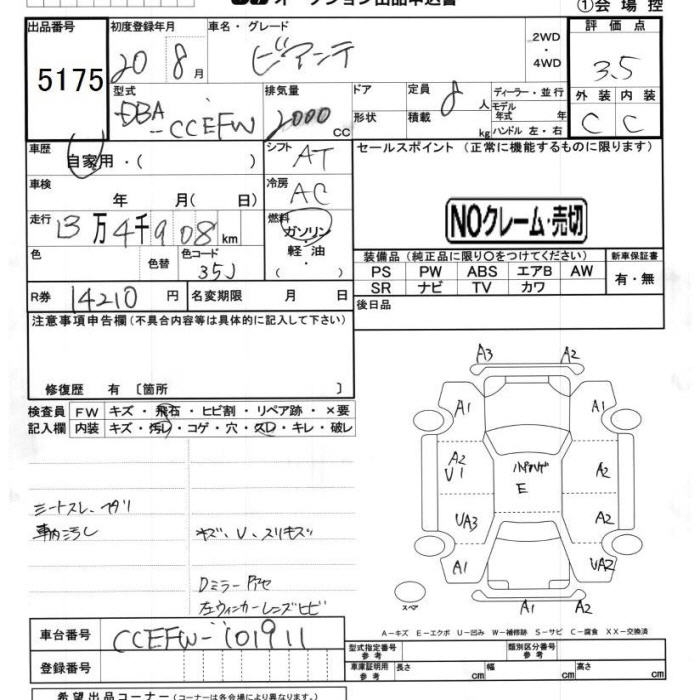 オークション出品申込書
①会場控
出品番号 5175
初度登録年月 20 8月
車名・グレード ビアンテ
2WD・4WD
評価点 3.5
外装 C 内装 C
型式 DBA-CCEFW
排気量 2000 CC
ドア
形状
定員 8人
積載 kg
ディーラー・並行
モデル年式 年
ハンドル 左・右
車歴 自家用・( )
シフト AT
車検 年 月( 日)
冷房 AC
走行 13万4千908km
燃料 ガソリン・軽油・( )
色 色替 色コード 35J
R券 14210円
名変期限 月 日
セールスポイント (正常に機能するものに限ります)
NOクレーム・売切
装備品 (純正品に限り○をつけてください)
PS PW ABS エアB AW
SR ナビ TV カワ
新車保証書
有・無
後日品
注意事項申告欄 (不具合内容等は具体的に記入して下さい)
修復歴 有 〔箇所 〕
検査員記入欄
FW キズ・飛石・ヒビ割・リペア跡・×要
内装 キズ・汚レ・コゲ・穴・欠レ・キレ・破レ
車内汚し
キズ、U、スリキズ
Dミラー
左ウィンカーレンズヒビ
A3 A2
A1 A1
A2 U1
E
A2
UA3 A2
A1 UA2
A1
スペア
A－キズ E－エクボ U－凹み W－補修跡 S－サビ C－腐食 XX－交換済
車台番号 CCEFW-101911
登録番号
型式指定番号 参考
類別区分番号 参考
車庫証明用 参考 長さ cm 幅 cm 高さ cm
希望出品コーナー (コーナーは各会場により異なります。)